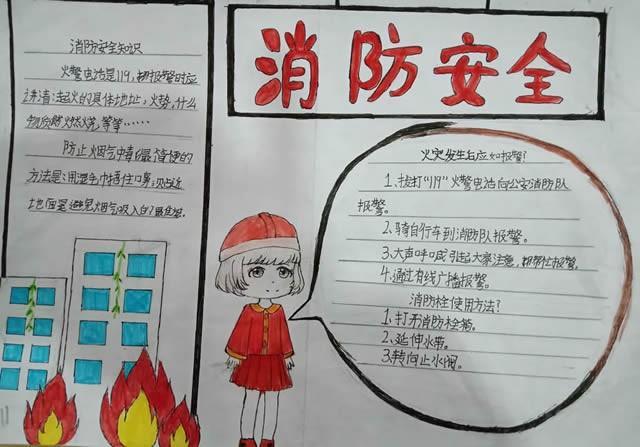 消防安全
消防安全知识
火警电话是119,报警时应
讲清:起火的具体地址,火势,什么
物质燃烧,等等……
防止烟气中毒最简便的
方法是:用湿毛巾捂住口鼻,
地面是避免烟气吸入的
火灾发生后应如报警?
1、拨打"119"火警电话向公安消防队
报警。
2、骑自行车到消防队报警。
3、大声呼喊引起大家注意,报警。
4、通过有线广播报警。
消防栓使用方法?
1、打开消防栓箱。
2、延伸水带。
3、转向止水阀。